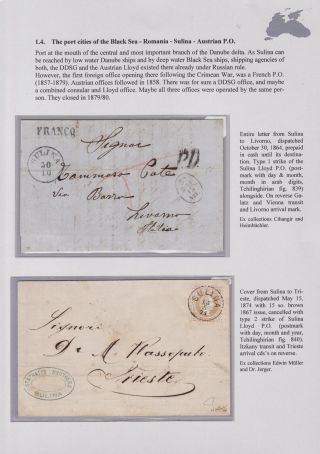 1.4. The port cities of the Black Sea - Romania - Sulina - Austrian P.O.
Port at the mouth of the central and most important branch of the Danube delta. As Sulina can
be reached by low water Danube ships and by deep water Black Sea ships, shipping agencies of
both, the DDSG and the Austrian Lloyd existed there already under Russian rule.
However, the first foreign office opening there following the Crimean War, was a French P.O.
(1857-1879). Austrian offices followed in 1858. There was for sure a DDSG office, and maybe
a combined consular and Lloyd office. Maybe all three offices were operated by the same per-
son. They closed in 1879/80.
FRANCO
SULINA
30
10
Signor
PD
Tommaso Pate
Via
Livorno
Italia
Entire letter from Sulina
to Livorno, dispatched
October 30, 1864, prepaid
in cash until its destina-
tion. Type 1 strike of the
Sulina Lloyd P.O. (post
mark with day & month,
month in arab digits,
Tchilinghirian fig. 839)
alongside. On reverse Ga-
latz and Vienna transit
and Livorno arrival mark.
Ex collections Cihangir and
Heimbüchler.
SULINA
Signori
Trieste
SULINA
Cover from Sulina to Tri-
este, dispatched May 15,
1874 with 15 so. brown
1867 issue, cancelled with
type 2 strike of Sulina
Lloyd P.O. (postmark
with day, month and year,
Tchilinghirian fig. 840).
Itzkany transit and Trieste
arrival cds's on reverse.
Ex collections Edwin Müller
and Dr. Jerger.